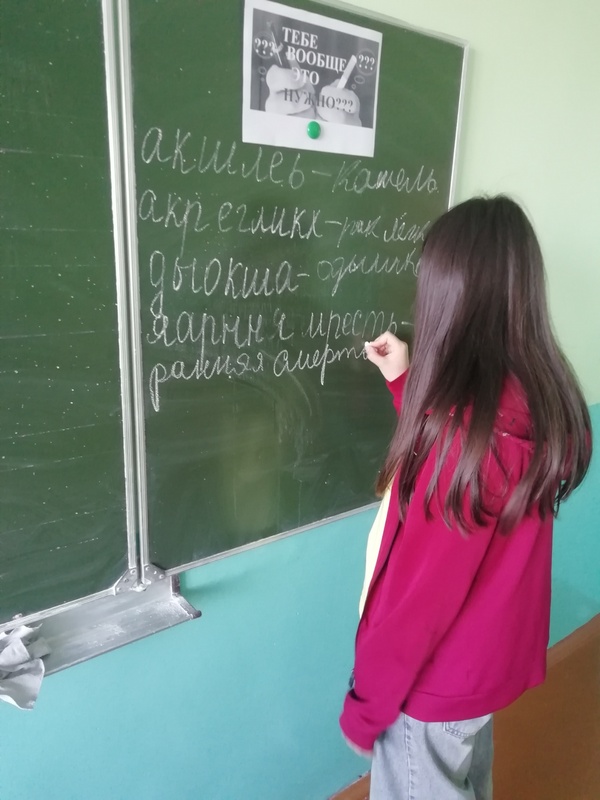 ??? ТЕБЕ ???
ВООБЩЕ
ЭТО
НУЖНО???
акшлеь - кашель
акр егликх - рак лёгк
дыокша - одышк
яарнн ч мресть -
ранняя смерть